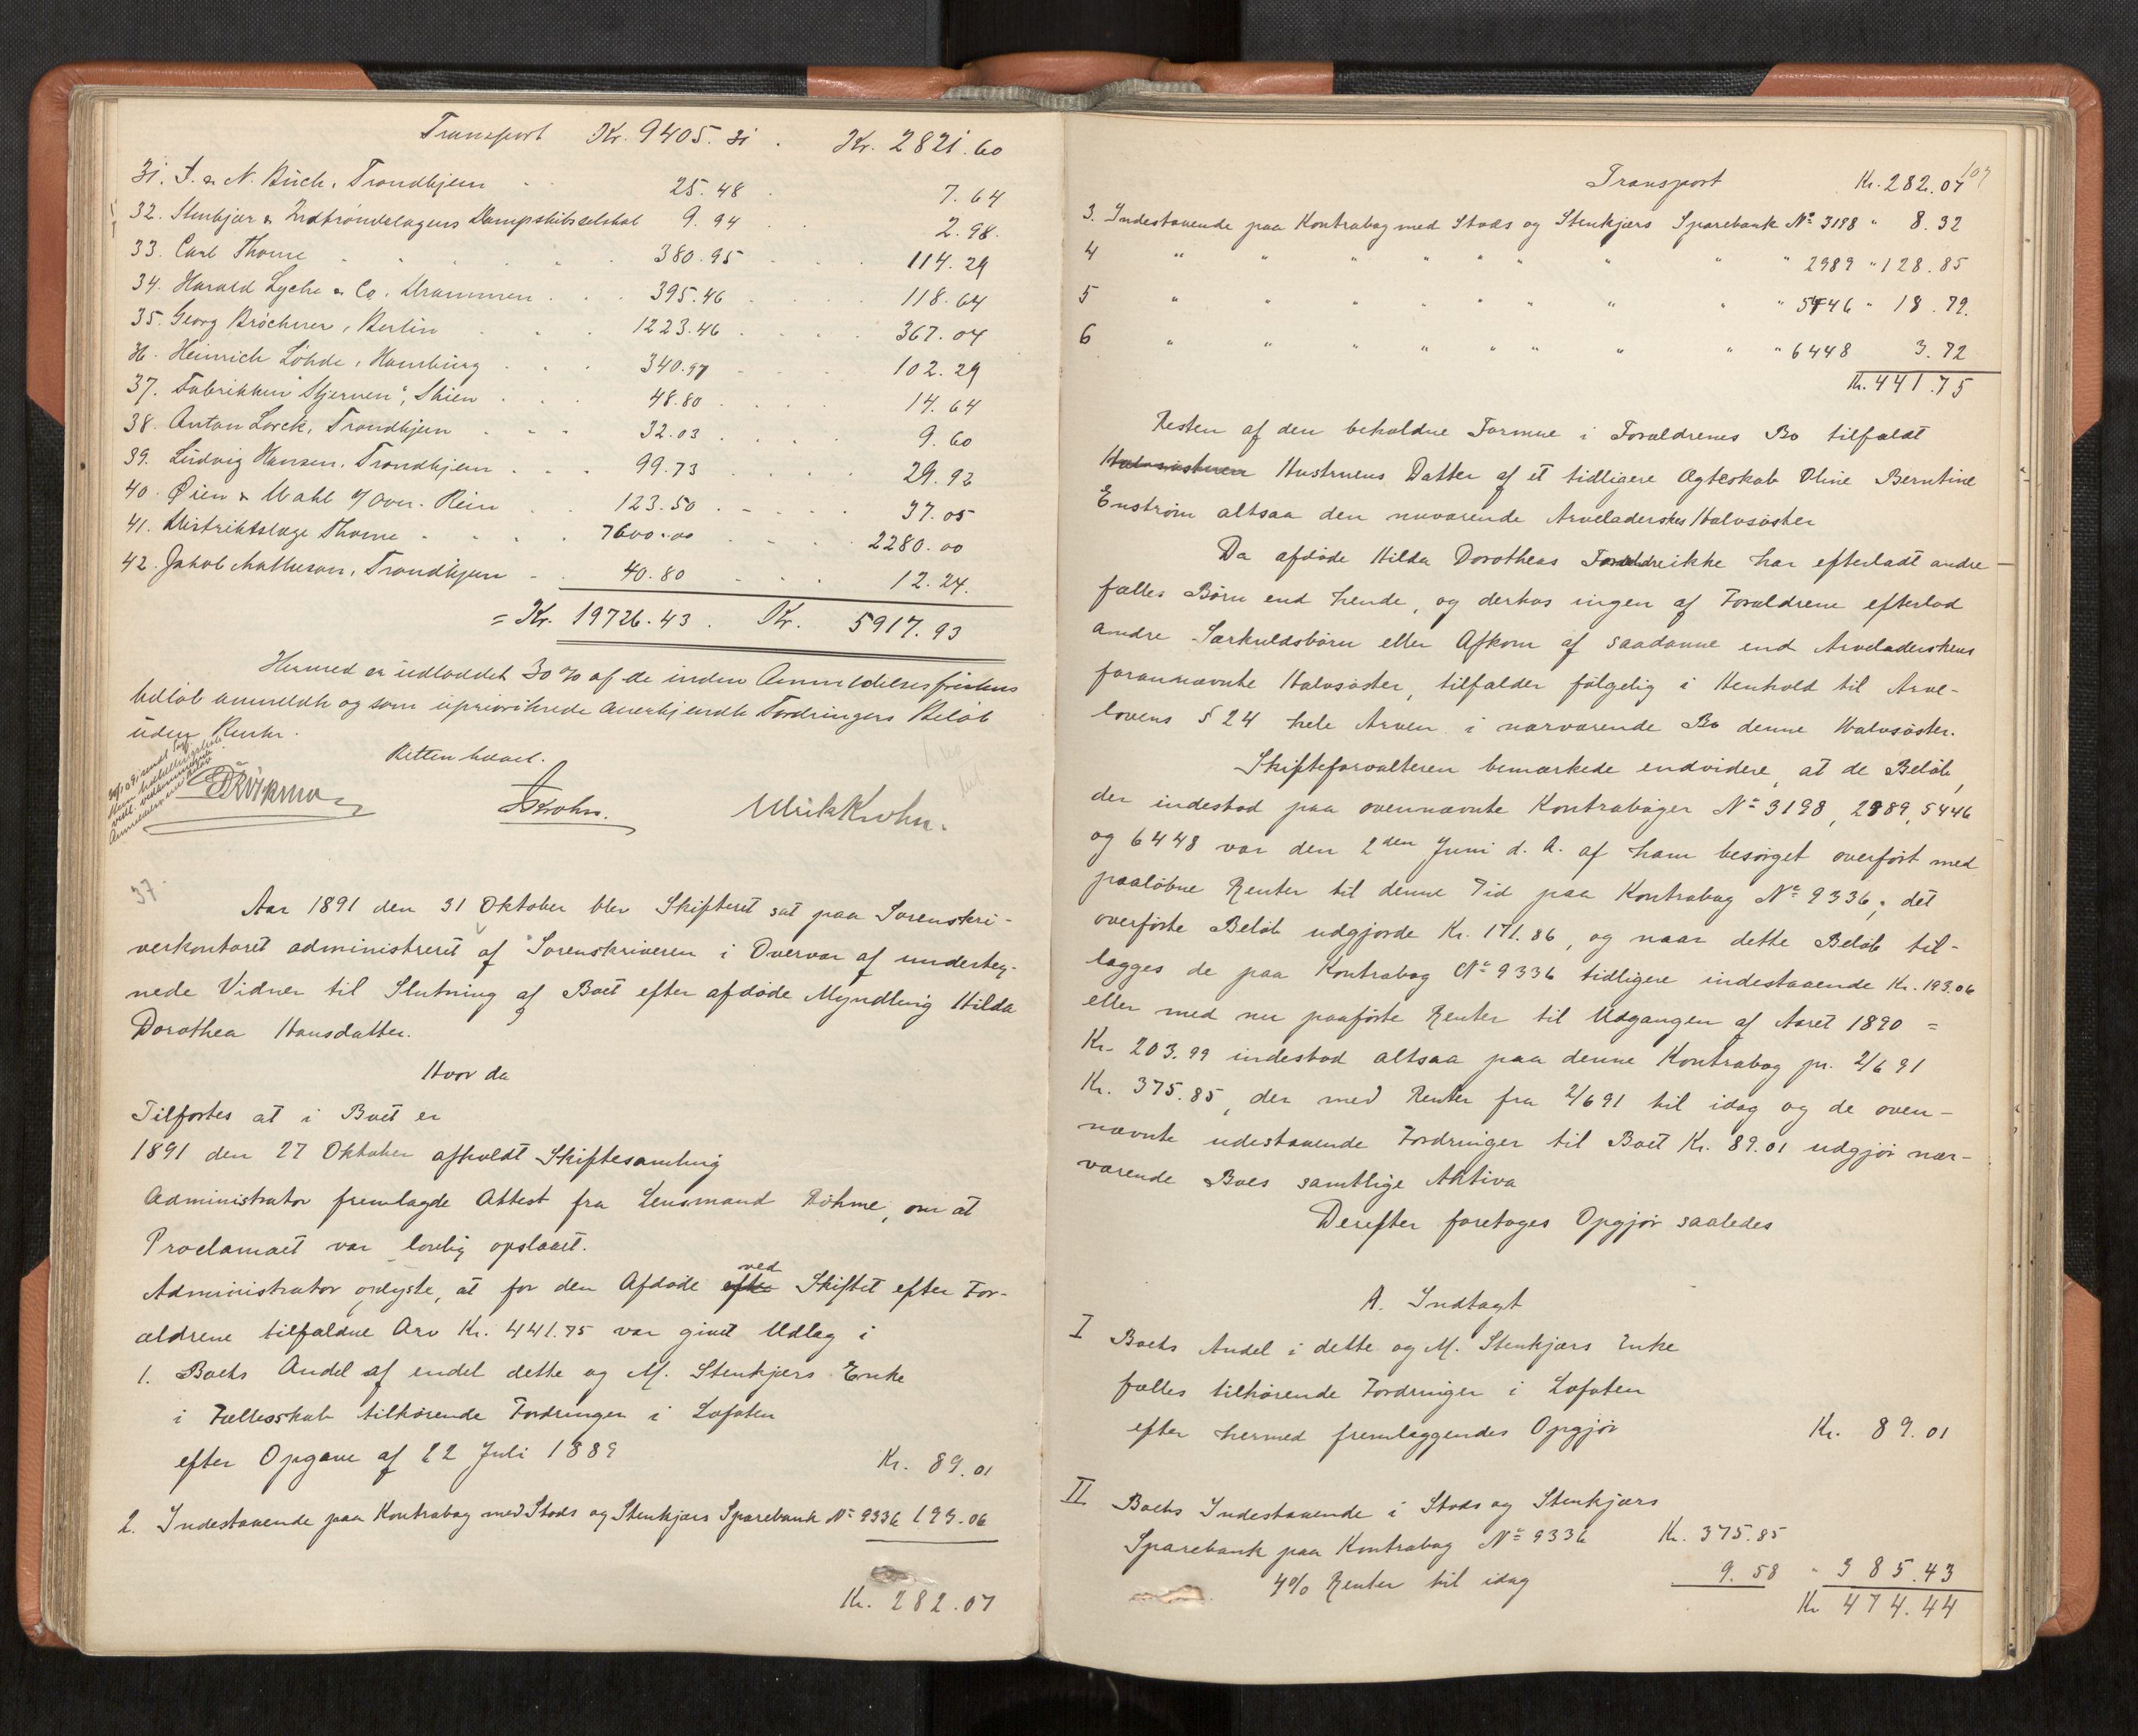 Transport Kr. 9405.31 . Kr. 2821.60
31. J. & N. Buch, Trondhjem 25.48 7.64
32. Stenkjær & Indtrøndelagens Dampskibsselskab 9.94 2.98.
33. Carl Thorne 380.95 114.29
34. Harald Lyche & Co, Drammen 395.46 118.64
35. Georg Bröchner, Berlin 1223.46 367.04
36. Heinrich Löhde, Hamburg 340.97 102.29
37. Fabrikken "Stjernen", Skien 48.80 14.64
38. Anton Lorck, Trondhjem 32.03 9.60
39. Ludvig Hansen, Trondhjem 99.73 29.92
40. Øien & Wahl v/ Overr. Rein 123.50 37.05
41. Distriktslæge Thorne 7600.00 2280.00
42. Jakob Mathesen, Trondhjem 40.80 12.24.
= Kr. 19726.43. Kr. 5917.93
Hermed er udloddet 30 % af de inden Anmeldelsesfristens
Udløb anmeldte og som uprioriterede anerkjendte Fordringers Beløb
uden Renter.
Retten hævet.
Krohn. Ulrik Krohn.
37.
Aar 1891 den 31 Oktober blev Skifteret sat paa Sorenskri-
verkontoret administreret af Sorenskriveren i Overvær af underteg-
nede Vidner til Slutning af Boet efter afdøde Myndling Hilda
Dorothea Hansdatter.
Hvor da
Tilførtes at i Boet er
1891 den 27 Oktober afholdt Skiftesamling
Administrator fremlagde Attest fra Lensmand Böhme, om at
Proclamaet var lovlig opslaaet.
Administrator oplyste, at for den Afdøde efter ved Skiftet efter For-
ældrene tilfaldne Arv Kr. 441.75 var givet Udlæg i
1. Boets Andel af endel dette og M. Stenkjærs Enke
i Fællesskab tilhørende Fordringer i Lofoten
efter Opgave af 22 Juli 1889 Kr. 89.01
2. Indestaaende paa Kontrabog med Stods og Stenkjærs Sparebank No 9336 193.06
Kr. 282.07
107
Transport Kr. 282.07
3. Indestaaende paa Kontrabog med Stods og Stenkjærs Sparebank No 3198 " 8.32
4 " " " " " " " " " 2989 " 128.85
5 " " " " " " " " " 5446 " 18.79.
6 " " " " " " " " " 6448 3.72
Kr. 441.75
Resten af den beholdne Formue i Forældrenes Bo tilfaldt
Halvsøsteren Hustruens Datter af et tidligere Ægteskab Oline Berntine
Enstrøm altsaa den nuværende Arveladerskes Halvsøster
Da afdøde Hilda Dorotheas Forældre ikke har efterladt andre
fælles Børn end hende, og derhos ingen af Forældrene efterlod
andre Særkuldsbørn eller Afkom af saadanne end Arveladerskens
forannævnte Halvsøster, tilfalder følgelig i Henhold til Arve-
lovens § 24 hele Arven i nærværende Bo denne Halvsøster.
Skifteforvalteren bemærkede endvidere, at de Beløb,
der indestod paa ovennævnte Kontrabøger No 3198, 2989, 5446
og 6448 var den 2den Juni d. A. af ham besørget overført med
paaløbne Renter til denne Tid paa Kontrabog No 9336; det
overførte Beløb udgjorde Kr. 171.86, og naar dette Beløb til-
lægges de paa Kontrabog No 9336 tidligere indestaaende Kr. 193.06
eller med nu paaførte Renter til Udgangen af Aaret 1890 =
Kr. 203.99 indestod altsaa paa denne Kontrabog pr. 2/6 91
Kr. 375.85, der med Renter fra 2/6 91 til idag og de oven-
nævnte udestaaende Fordringer til Boet Kr. 89.01 udgjør nær-
værende Boes samtlige Aktiva
Derefter foretoges Opgjør saaledes
A. Indtægt
I Boets Andel i dette og M. Stenkjærs Enke
fælles tilhørende Fordringer i Lofoten
efter hermed fremlæggendes Opgjør Kr. 89.01
II Boets Indestaaende i Stods og Stenkjærs
Sparebank paa Kontrabog No 9336 Kr. 375.85
4% Renter til idag 9.58 " 385.43
Kr 474.44